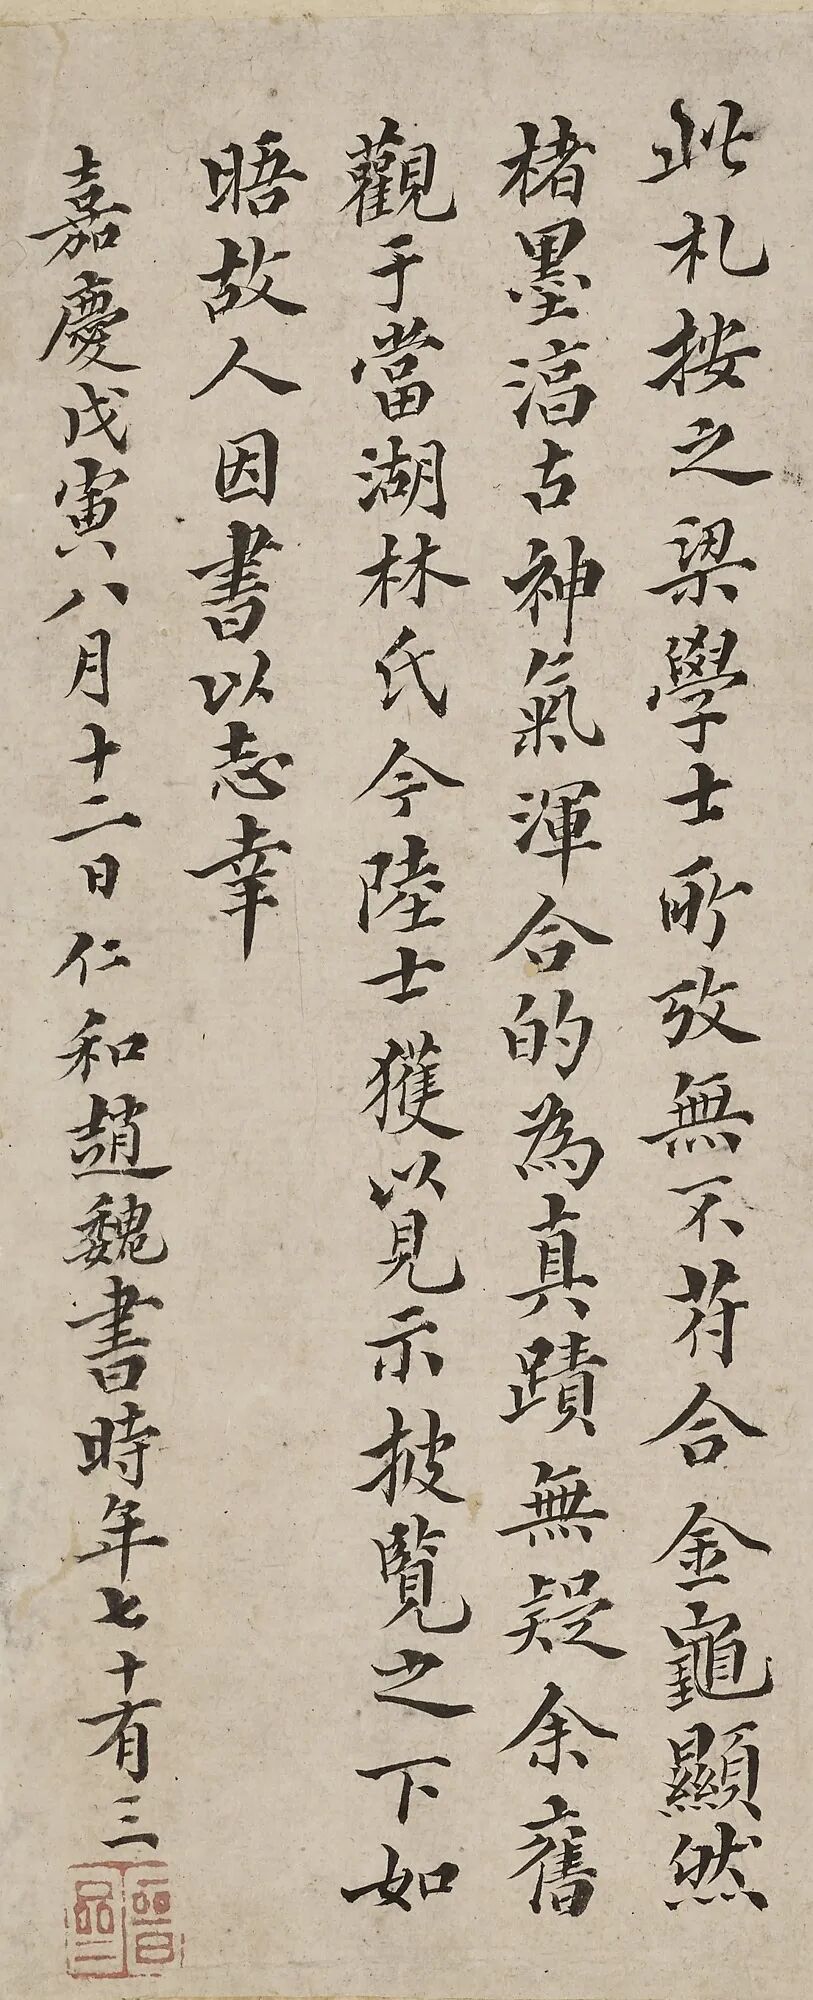 此札按之梁學士所攷無不苻合金龜顯然
楮墨渻古神氣渾合的為真蹟無疑余舊
觀于當湖林氏今陸士獲以見示披覽之下如
晤故人因書以志幸
嘉慶戊寅八月十二日仁和趙魏書時年七十有三